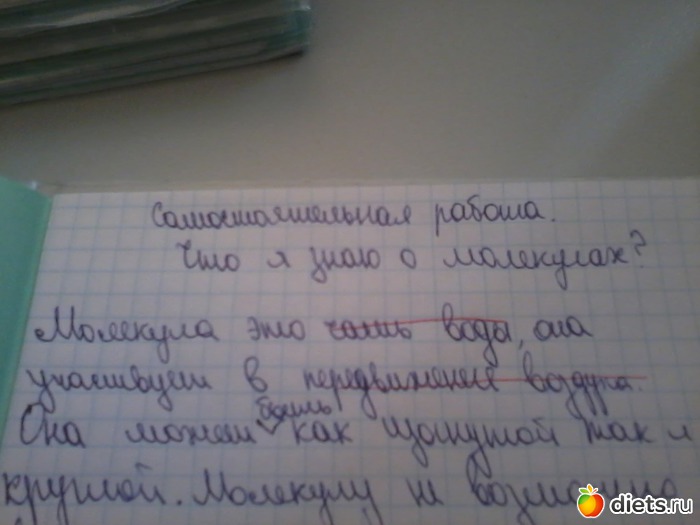 Самостоятельная работа.
Что я знаю о молекулах?
Молекула это часть воды, она
участвует в передвижение воздуха.
быть
Она может как изогнутой так и
круглой. Молекулу не возможно
diets.ru